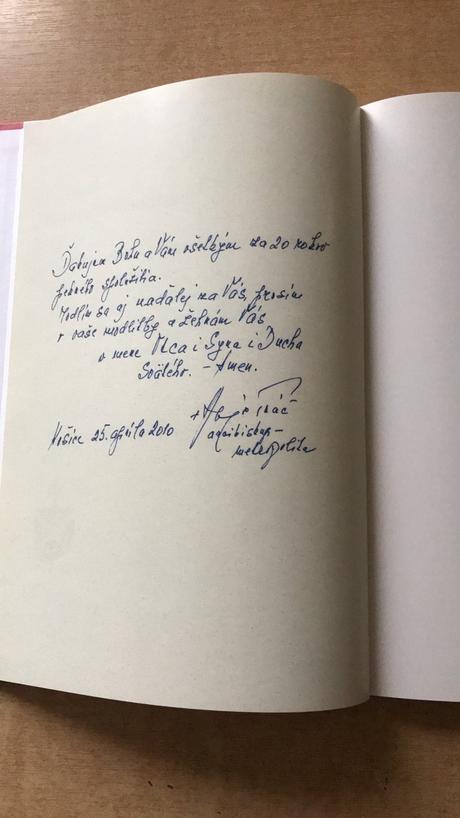 Ďakujem Bohu a Vám všetkým za 20 rokov
pekného spolužitia.
Modlím sa aj naďalej za Vás, prosím
o vaše modlitby a žehnám Vás
v mene Otca i Syna i Ducha
Svätého. – Amen.
+ Alojz Tkáč
Košice 25. apríla 2010
arcibiskup –
metropolita